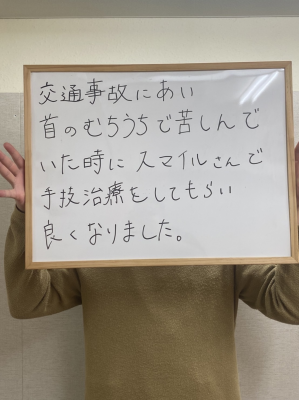 交通事故にあい
首のむちうちで苦しんで
いた時に スマイルさんで
手技治療をしてもらい
良くなりました。